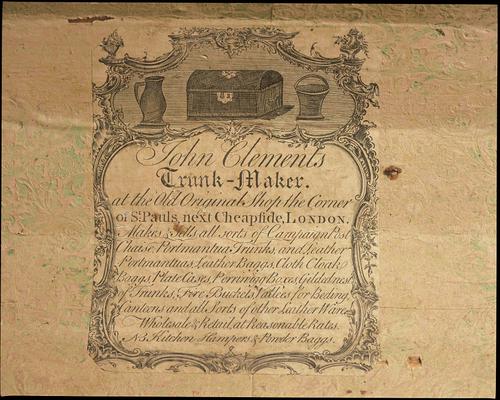 John Clements
Trunk-Maker.
at the Old Original Shop the Corner
of St. Pauls, next Cheapside, LONDON.
Makes & Sells all sorts of Campaign Post
Chaise Portmantua Trunks, and Leather
Portmantuas, Leather Baggs, Cloth Cloak
Baggs, Plate Cases, Perriwig Boxes,
of Trunks, Fire Buckets, Valices for Beding,
Canteens and all Sorts of other Leather Ware
Wholesale & Retail, at Reasonable Rates.
NB Kitchen Hampers & Powder Baggs.